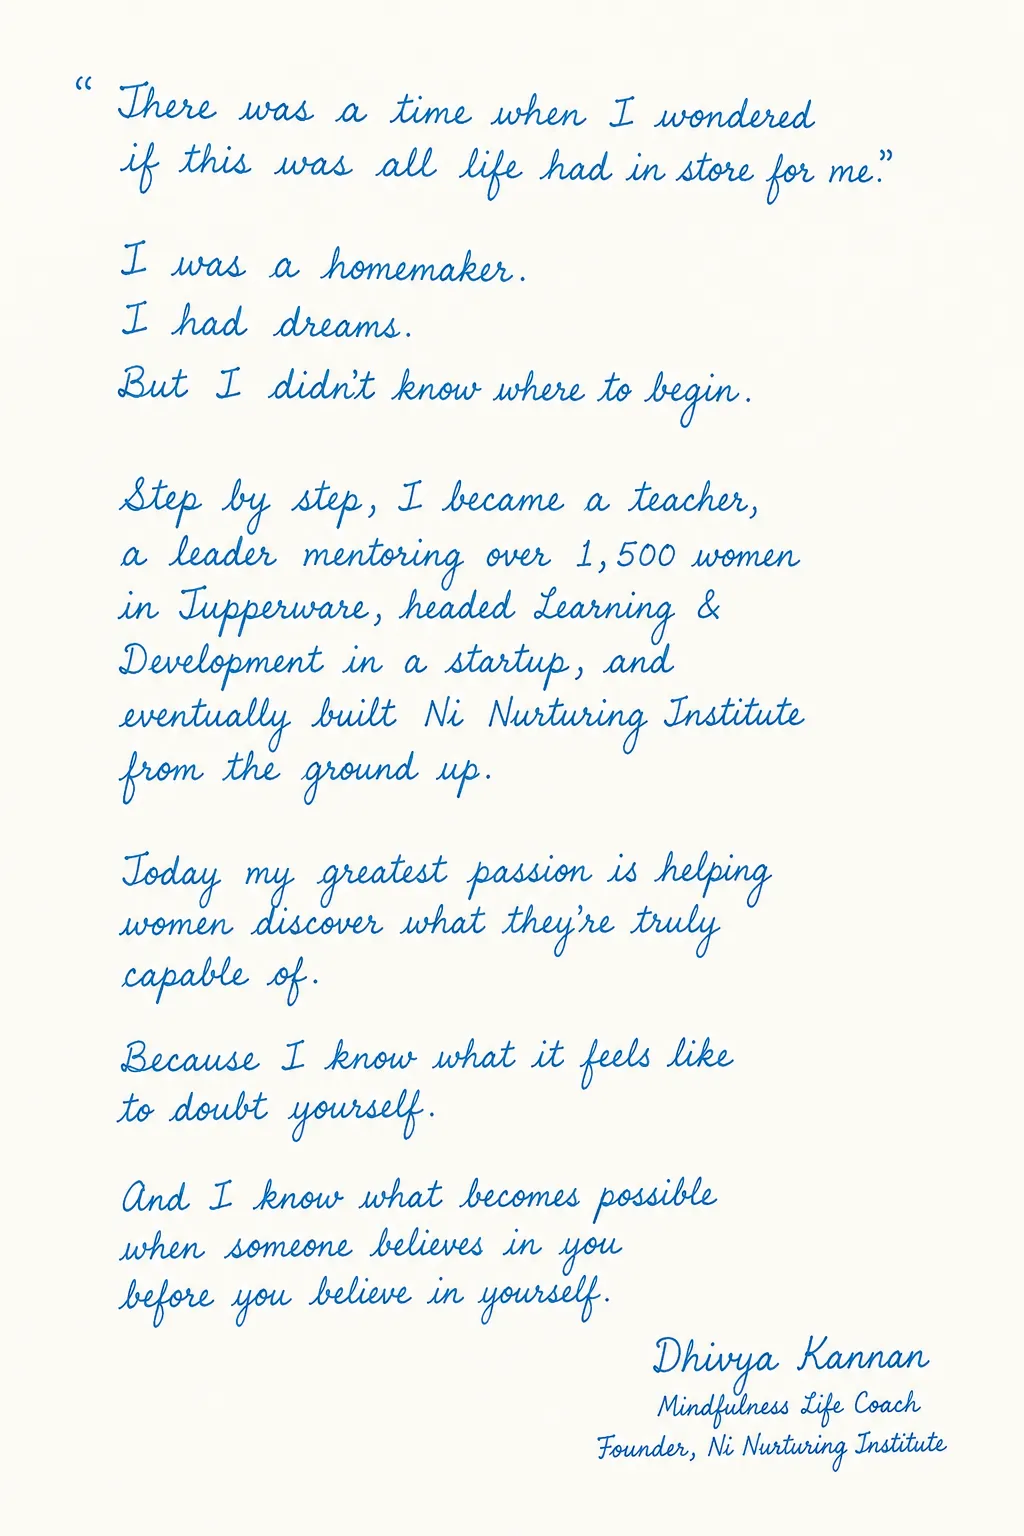 “ There was a time when I wondered
if this was all life had in store for me.”
I was a homemaker.
I had dreams.
But I didn’t know where to begin.
Step by step, I became a teacher,
a leader mentoring over 1,500 women
in Tupperware, headed Learning &
Development in a startup, and
eventually built Ni Nurturing Institute
from the ground up.
Today my greatest passion is helping
women discover what they’re truly
capable of.
Because I know what it feels like
to doubt yourself.
And I know what becomes possible
when someone believes in you
before you believe in yourself.
Dhivya Kannan
Mindfulness Life Coach
Founder, Ni Nurturing Institute